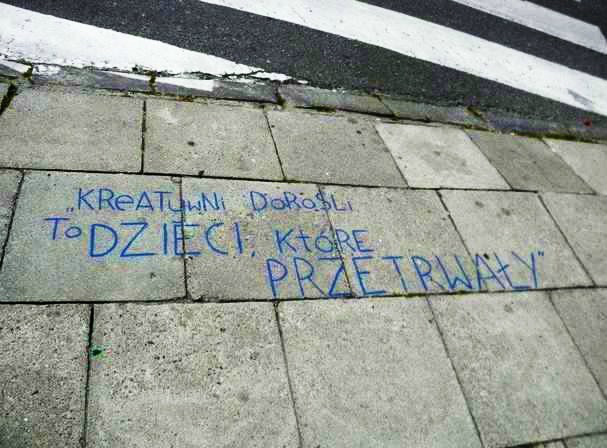 „KReATywNi DoRoŚLi
To DZIECI, KtóRE
PRZETRWAŁY"